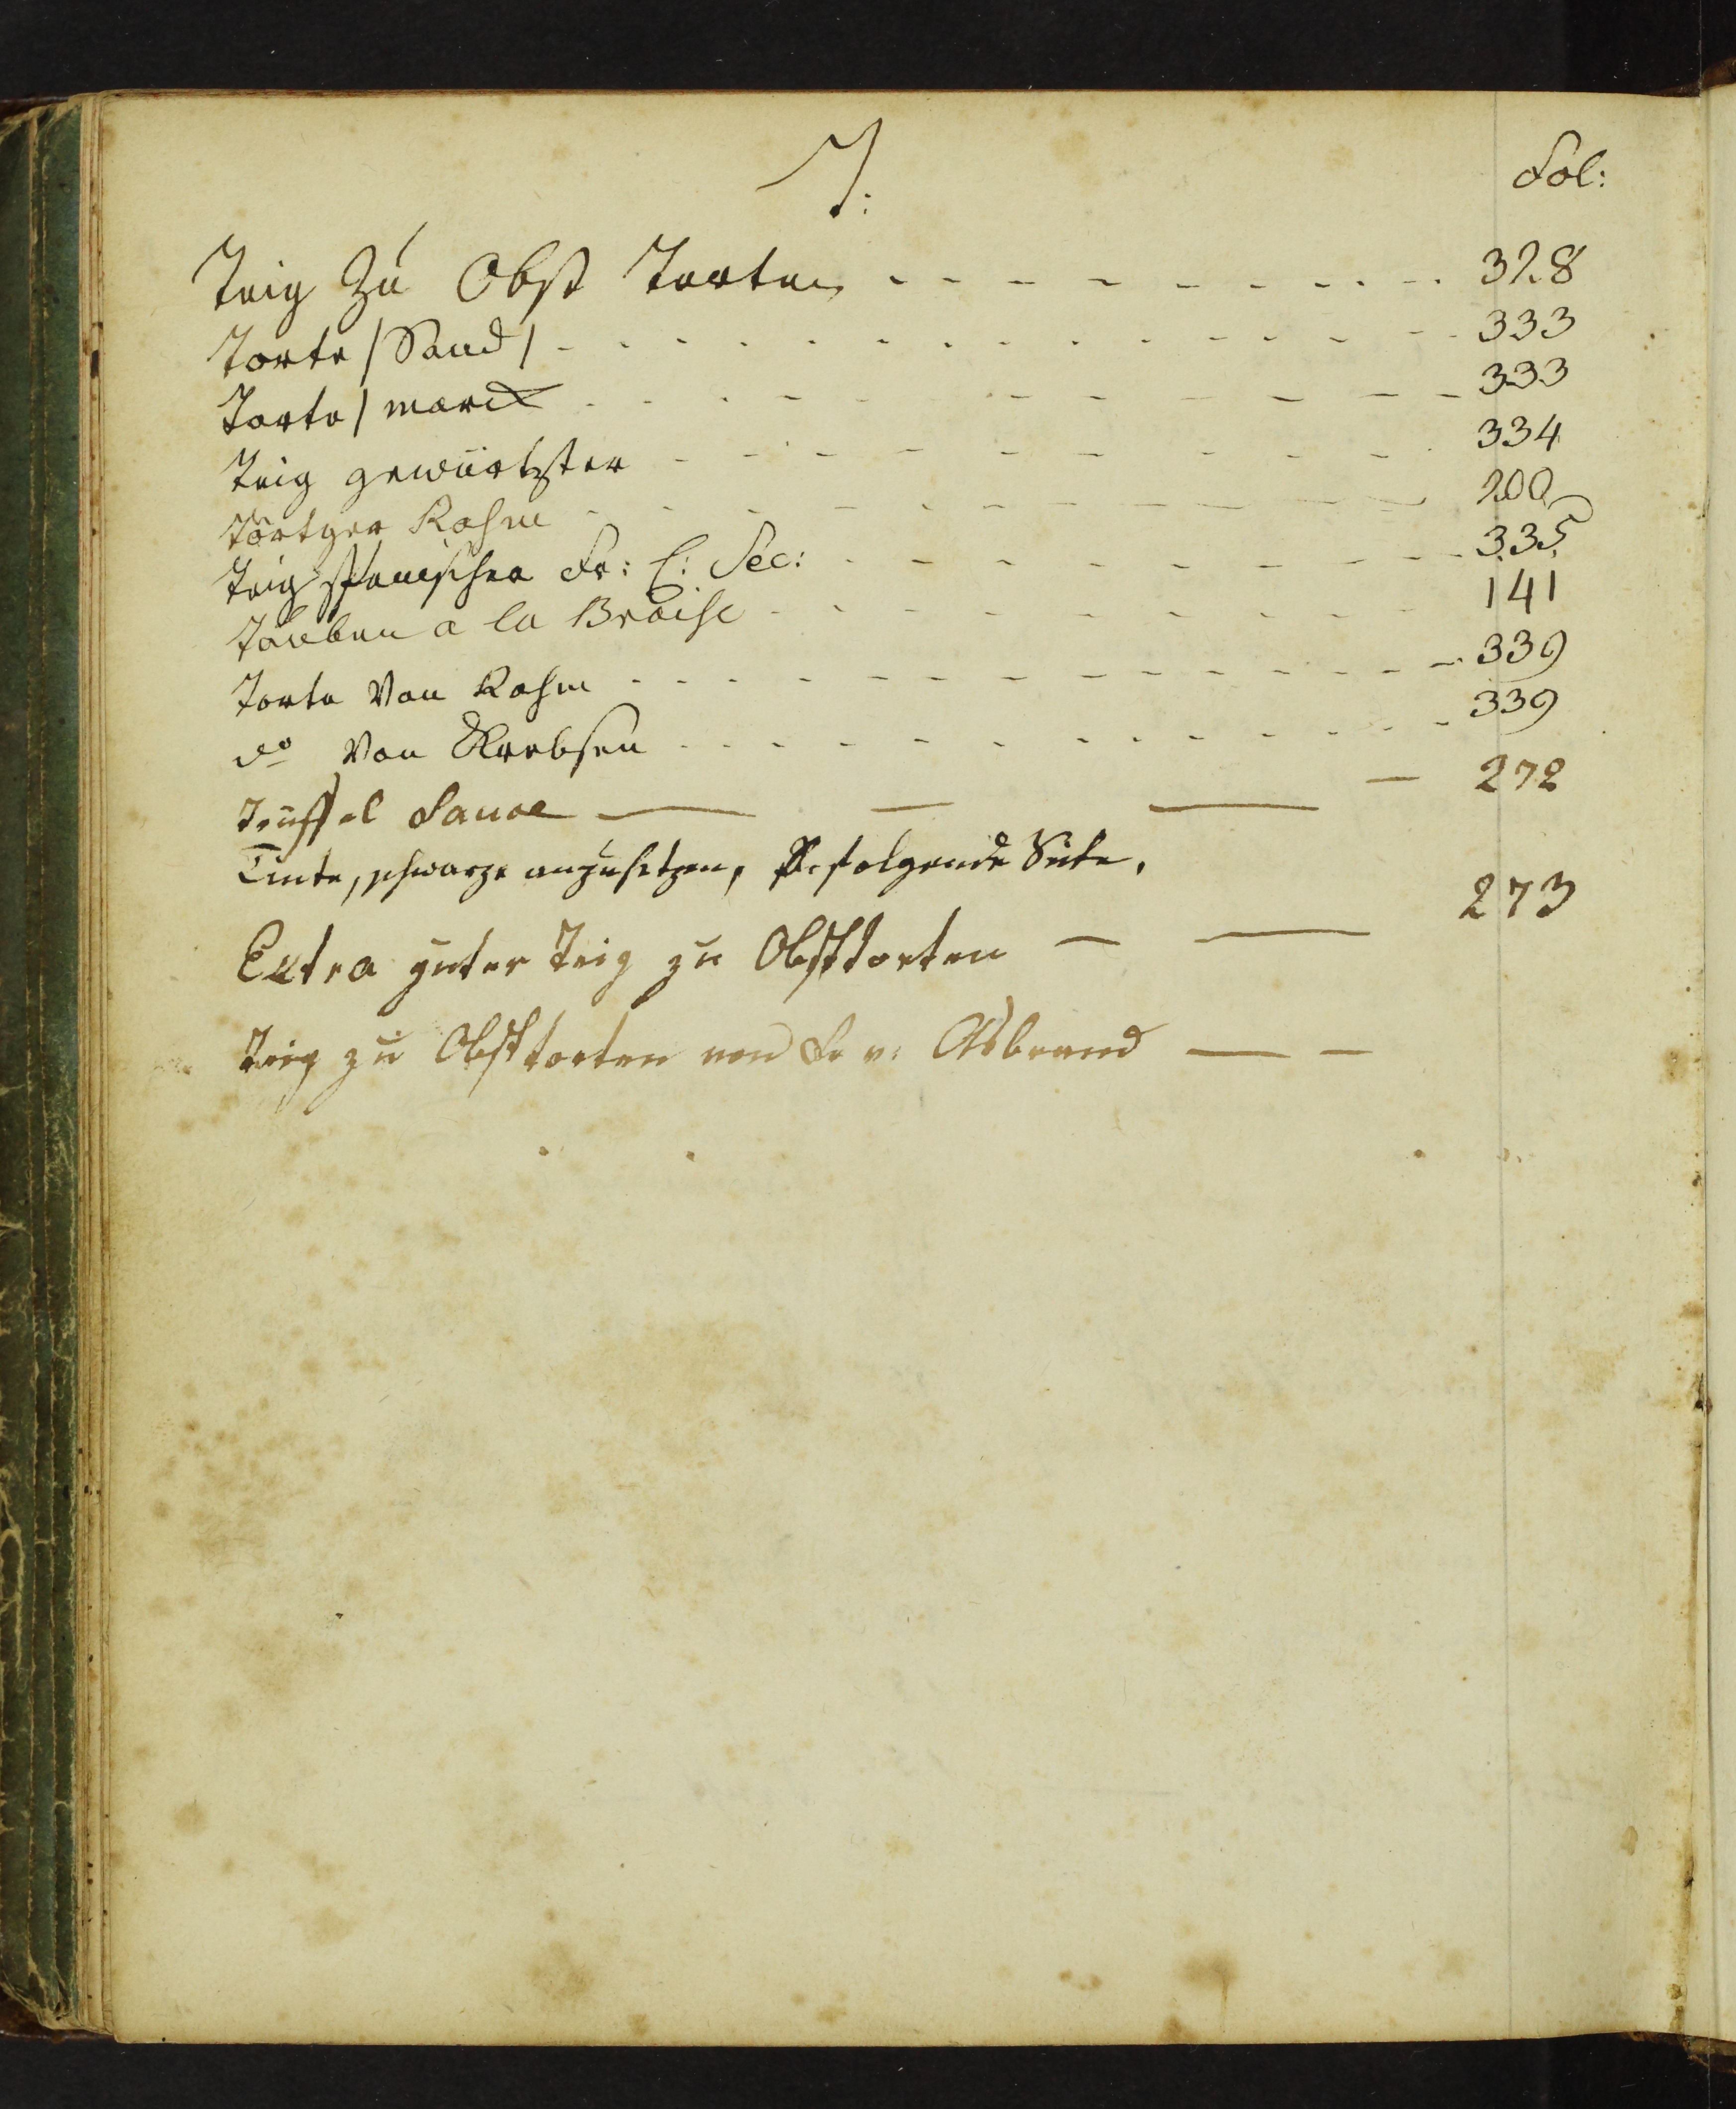 T:
Fol:
Teig Zu Obst Torten - - - - - - - - - 328
Torte /Sand/ - - - - - - - - - - - - 333
Torte / marck - - - - - - - - - - - 333
Teig gewürtzter - - - - - - - - - - 334
Törtger Rahm - - - - - - - - - - 200
Teig spanischer Fr: C: Sec: - - - - - - - - 335
Tauben a la Braise - - - - - - - - 141
Torte Von Rahm - - - - - - - - - - - - 339
do Von Krebsen - - - - - - - - - - - 339
Trüffel Sauce — — — — 272
Tinte, schwarze anzusetzen, folgende Seite.
Extra guter Teig zu Obsttorten — — 273
Teig zu Obsttorten von Fr v: Asbrand — —